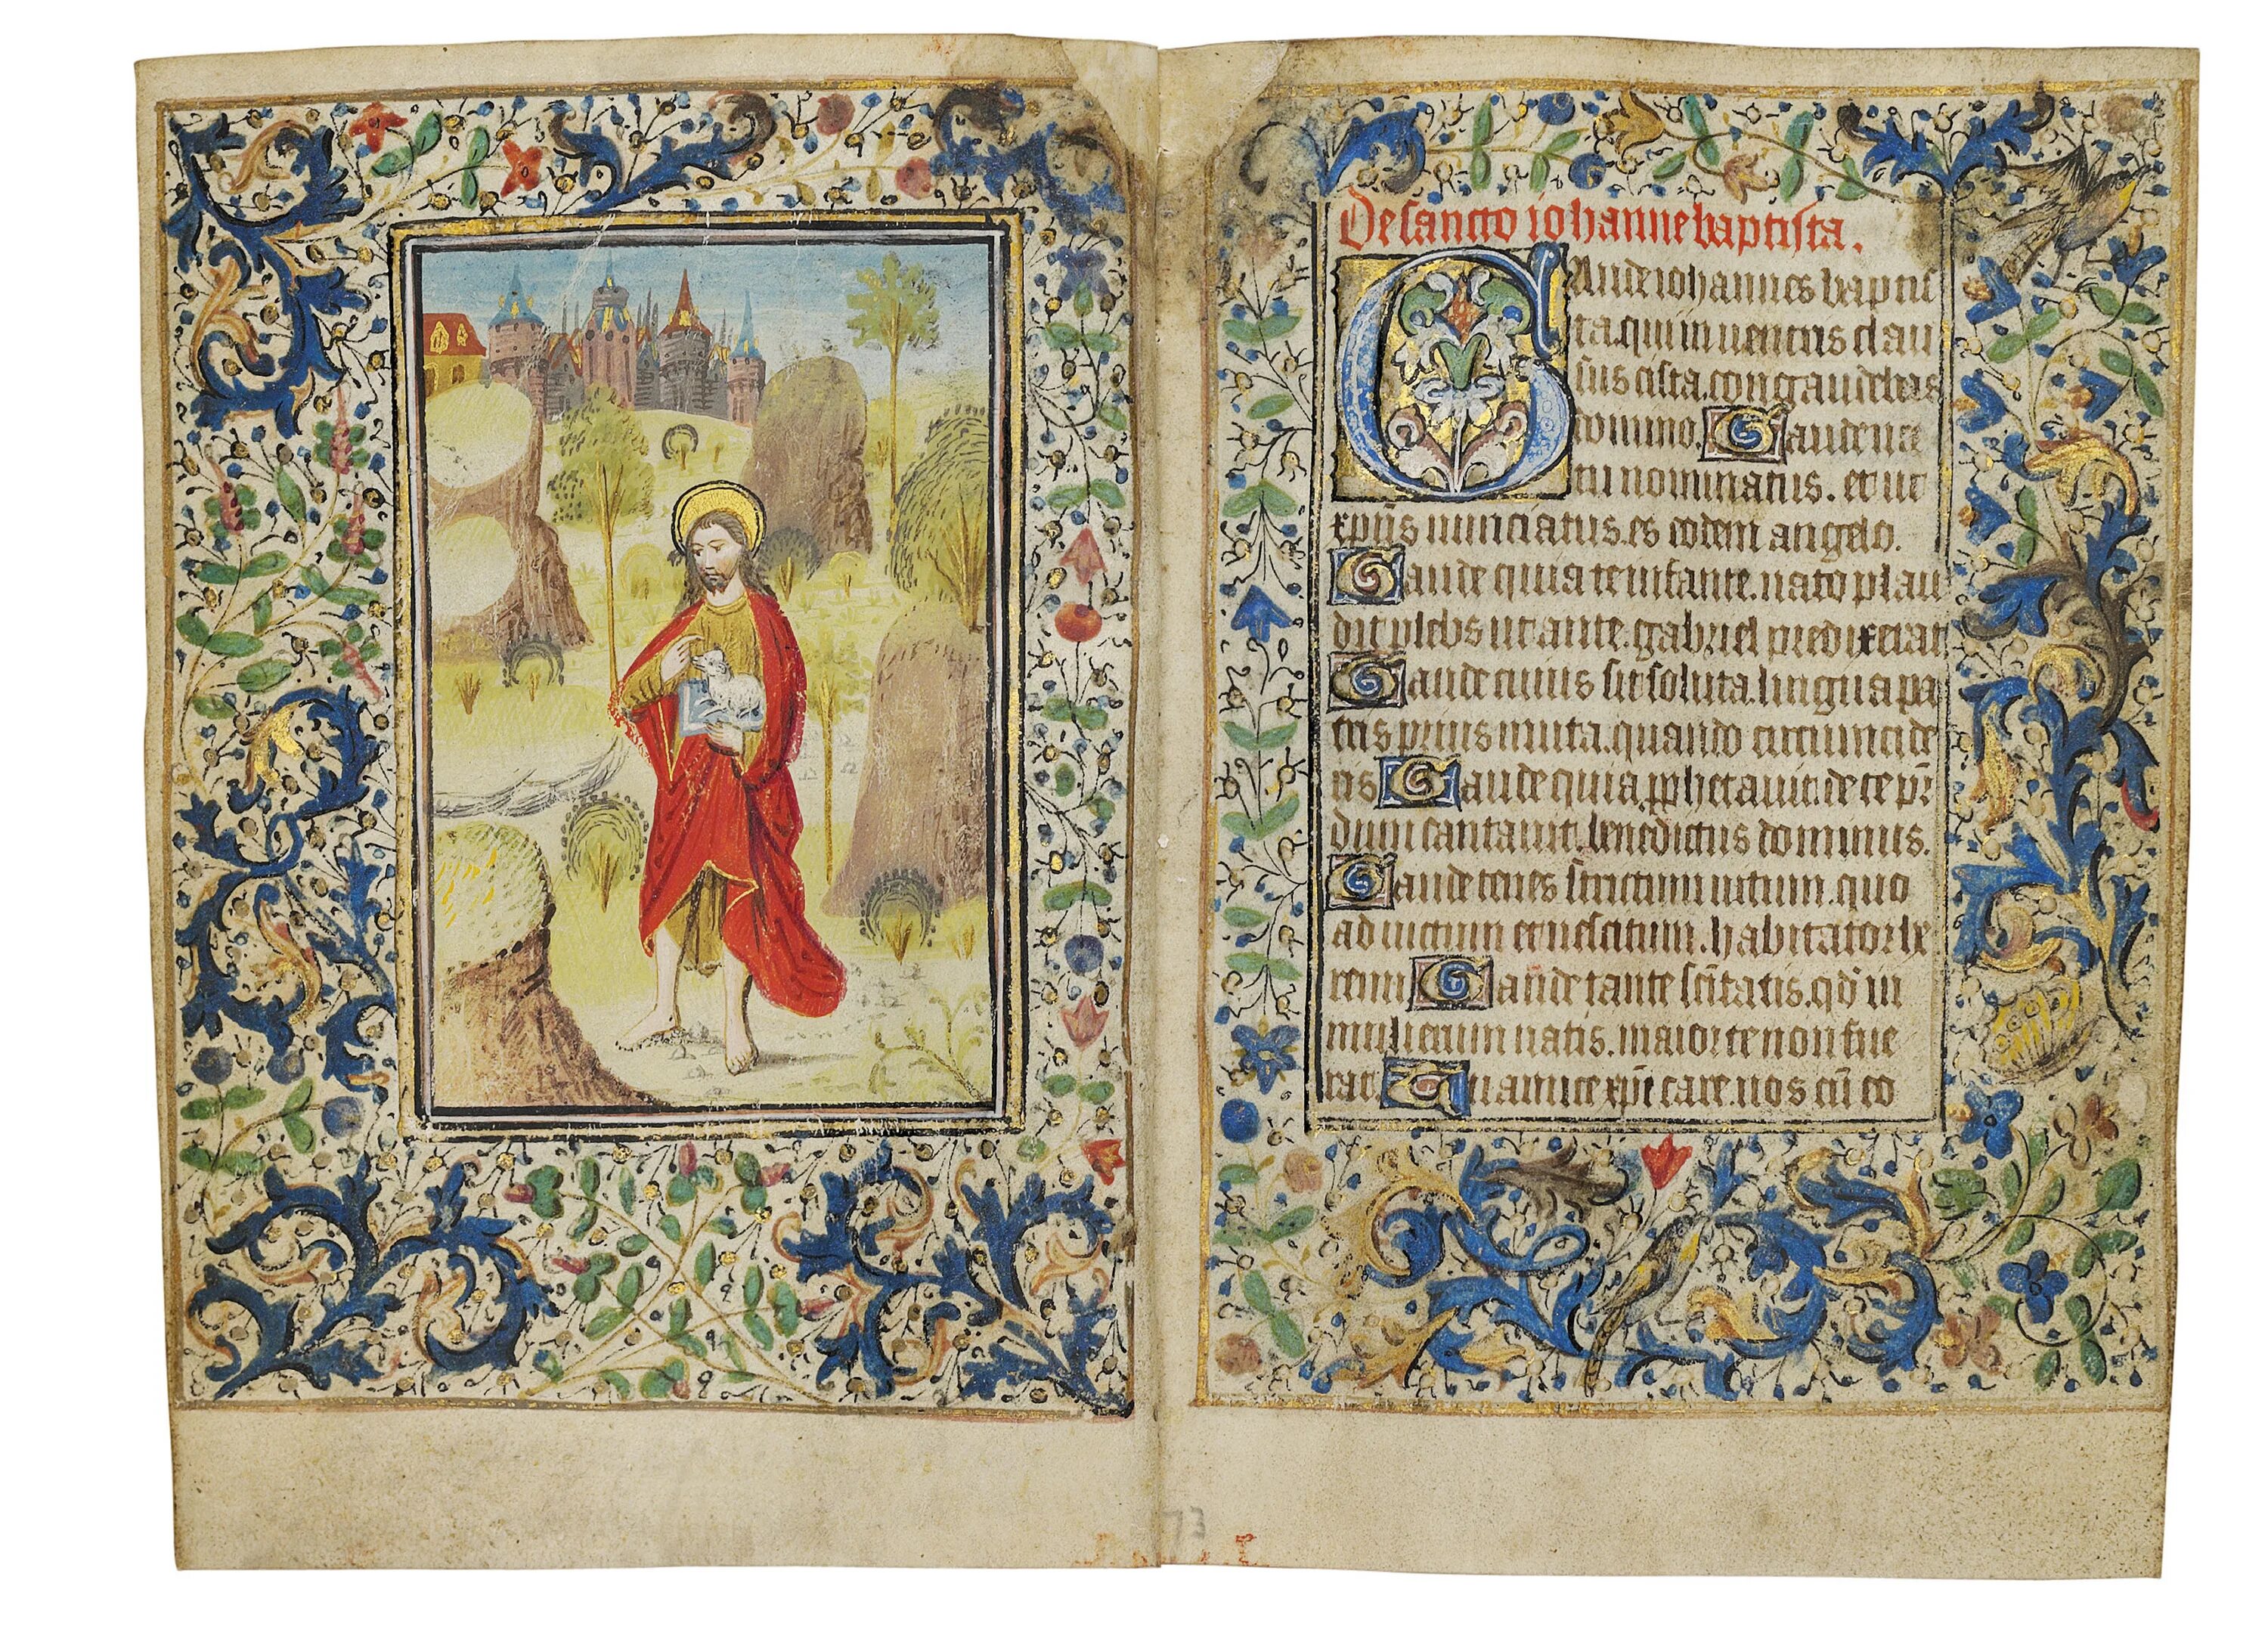 De sancto iohanne baptista.
Gaude iohannes baptis
ta. qui in uentris clau
sus cista. congaudebas
domino. Gaude na
tu nominatus. et ut
xpūs nunciatus. es eodem angelo.
Gaude quia te infante. nato plau
dit plebs ut ante. gabriel predixerat
Gaude cuius sit soluta. lingua pa
tris prius muta. quando circumcide
ris Gaude quia pphetauit. de te pr̄
dum cantauit. benedictus dominus.
Gaude tenes strictum uitum. quo
ad uictum et uestitum. habitator he
remi Gaude tante sc̄itatis. qd̄ in
mulierum natis. maior te non fue
rat. Tu amice xp̄i care. nos cū eo
73